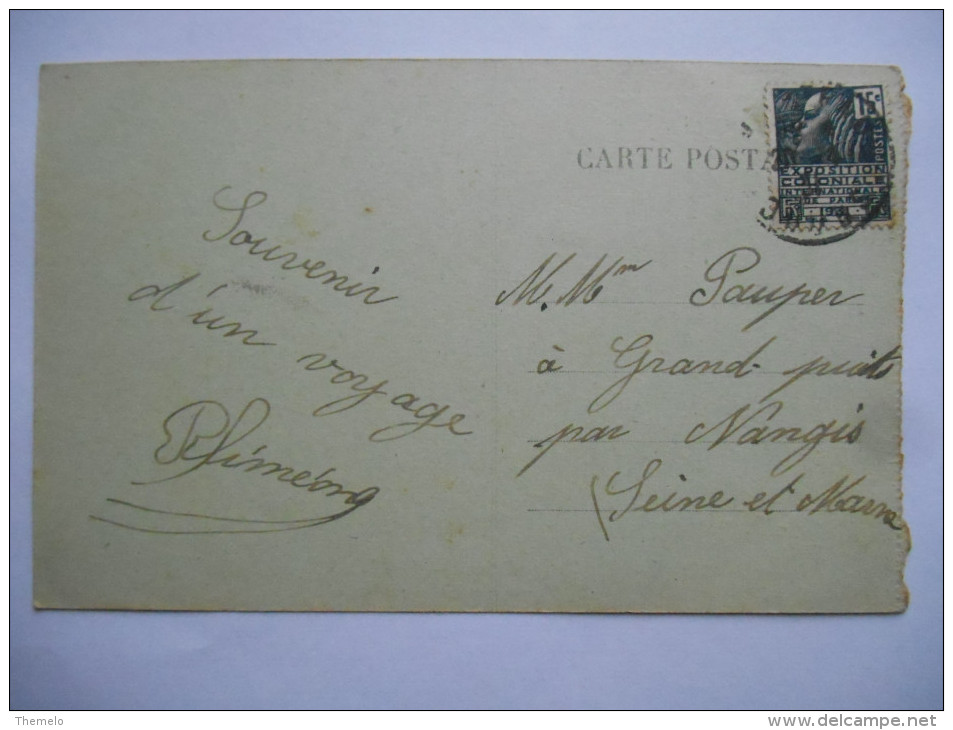 CARTE POSTA
15c
POSTES
EXPOSITION
COLONIALE
INTERNATIONALE
DE PARIS
1931
Souvenir
d'un voyage
M. Mm Pauper
à Grand-puits
par Nangis
(Seine et Marne
Themelo
http://www.delcampe.net